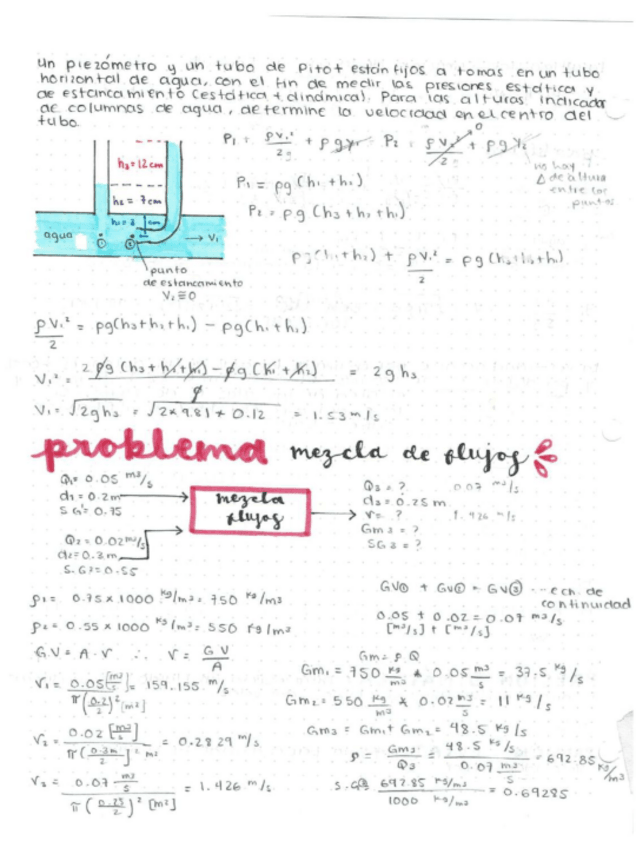 Un piezómetro y un tubo de Pitot están fijos a tomas en un tubo
horizontal de agua, con el fin de medir las presiones estática y
de estancamiento (estática + dinámica). Para las alturas indicadas
de columnas de agua, determine la velocidad en el centro del
tubo.
P₁ + ρV₁²/2g + ρgy₁ = P₂ + ρV₂²/2 + ρgy₂
0
no hay
Δ de altura
entre los
puntos
h₃ = 12 cm
h₂ = 7 cm
h₁ = 3 cm
agua
① ②
→ V₁
punto
de estancamiento
V₂ ≅ 0
P₁ = ρg(h₁+h₂)
P₂ = ρg(h₃+h₂+h₁)
ρg(h₁+h₂) + ρV₁²/2 = ρg(h₃+h₂+h₁)
ρV₁²/2 = ρg(h₃+h₂+h₁) - ρg(h₁+h₂)
V₁² = 2ρg(h₃+h₂+h₁) - ρg(h₁+h₂)/ρ = 2gh₃
V₁ = √2gh₃ = √2×9.81×0.12 = 1.53 m/s
problema mezcla de flujos
Q₁= 0.05 m³/s
d₁= 0.2m
SG₁= 0.75
Q₂= 0.02 m³/s
d₂= 0.3m
S.G₂= 0.55
mezcla
flujos
Q₃ = ? 0.07 m³/s
d₃= 0.25 m
V= ? 1.426 m/s
Gm3 = ?
SG3 = ?
ρ₁= 0.75 × 1000 kg/m³= 750 kg/m³
ρ₂= 0.55 × 1000 kg/m³= 550 kg/m³
G.V= A·V ∴ V= GV/A
V₁= 0.05[m³/s]/π(0.2/2)²[m²] = 159.155 m/s
V₂= 0.02[m³/s]/π(0.3m/2)² m² = 0.2829 m/s
V₃= 0.07 m³/s/π(0.25/2)²[m²] = 1.426 m/s
GV① + GV② = GV③ ... ech. de
continuidad
0.05 + 0.02 = 0.07 m³/s
[m³/s] + [m³/s]
Gm= ρ Q
Gm₁= 750 kg/m³ * 0.05 m³/s = 37.5 kg/s
Gm₂= 550 kg/m³ * 0.02 m³/s = 11 kg/s
Gm₃ = Gm₁+ Gm₂ = 48.5 kg/s
ρ = Gm₃/Q₃ = 48.5 kg/s/0.07 m³/s = 692.85 kg/m³
S.G③ 692.85 kg/m³/1000 kg/m³ = 0.69285